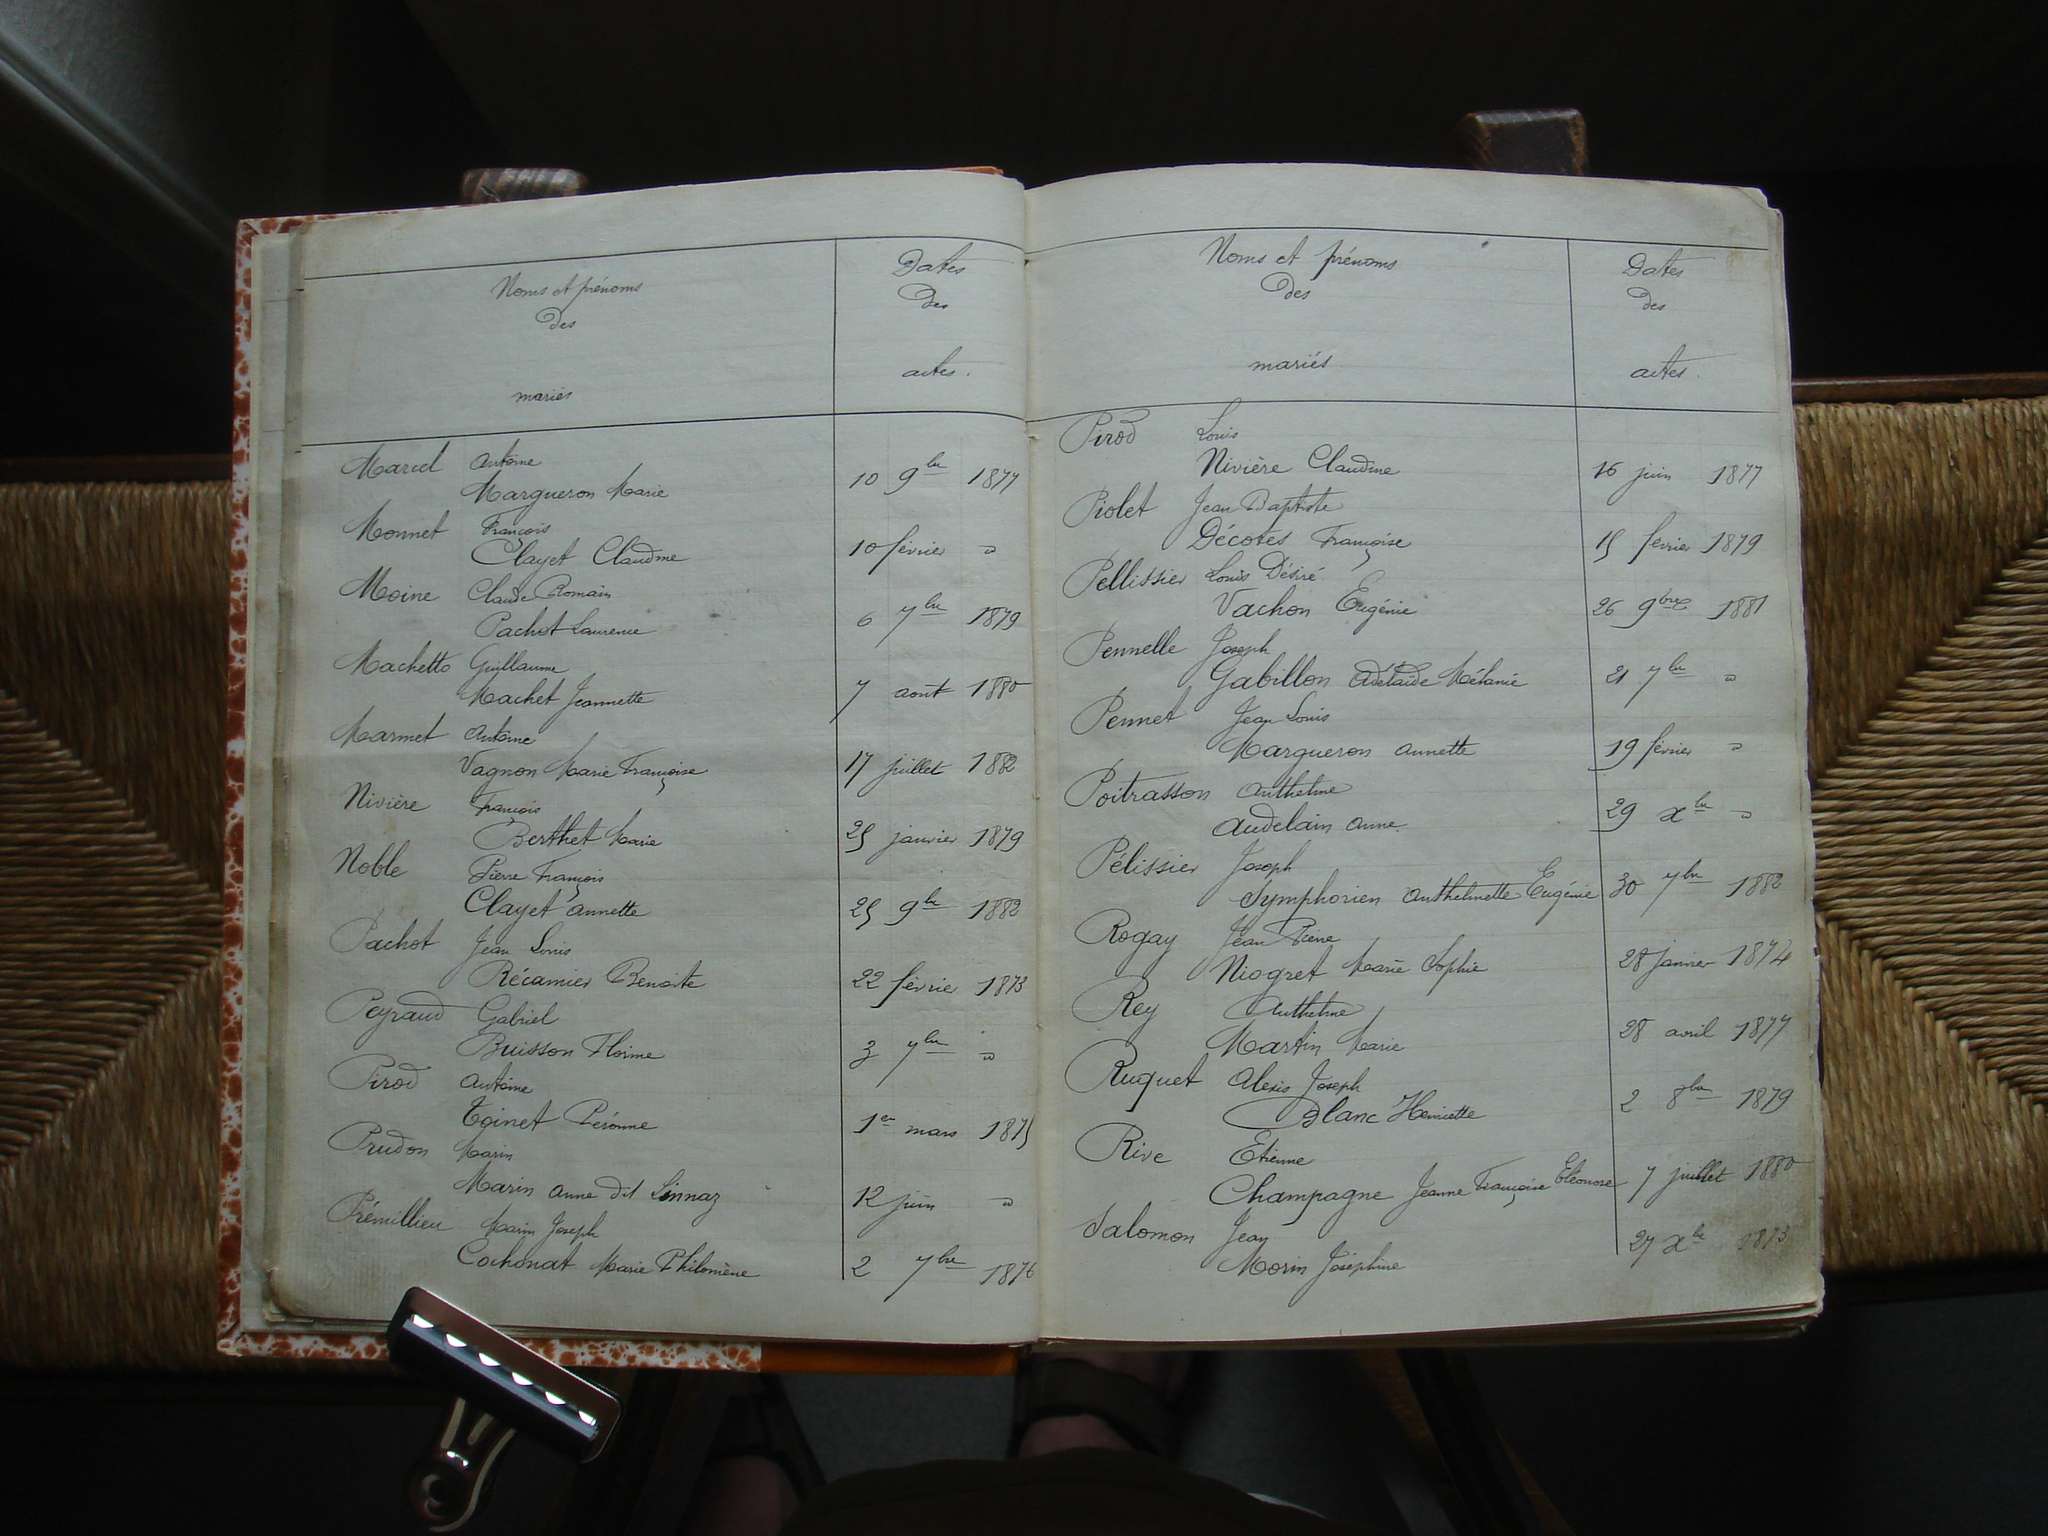 Noms et prénoms
des
mariés
Dates
des
actes.
Marcel Antoine
Margueron Marie 10 9bre 1877
Monnet François
Clayet Claudine 10 février "
Moine Claude Romain
Pachot Laurence 6 7bre 1879
Machetto Guillaume
Machet Jeannette 7 août 1880
Marmet Antoine
Vagnon Marie Françoise 17 juillet 1882
Nivière François
Berthet Marie 25 janvier 1879
Noble Pierre François
Clayet Annette 25 9bre 1882
Pachot Jean Louis
Récamier Benoite 22 février 1873
Peyraud Gabriel
Buisson Florine 3 7bre "
Pirod Antoine
Toinet Péronne 1er mars 1875
Prudon Marin
Marin Anne dit Linnaz 12 juin "
Prémillieu Marin Joseph
Cochonat Marie Philomène 2 7bre 1876
Noms et prénoms
des
mariés
Dates
des
actes.
Pirod Louis
Nivière Claudine 16 juin 1877
Piolet Jean Baptiste
Décotes Françoise 15 février 1879
Pellissier Louis Désiré
Vachon Eugénie 26 9bre 1881
Pennelle Joseph
Gabillon Adélaïde Mélanie 21 7bre "
Pennet Jean Louis
Margueron Annette 19 février "
Poitrasson Anthelme
Audelain Anne 29 xbre "
Pélissier Joseph
Symphorien Anthelmette Eugénie 30 7bre 1882
Rogay Jean Pierre
Niogret Marie Sophie 28 janvier 1874
Rey Anthelme
Martin Marie 28 avril 1877
Ruquet Alexis Joseph
Blanc Henriette 2 8bre 1879
Rive Etienne
Champagne Jeanne Françoise Eléonore 7 juillet 1880
Salomon Jean
Morin Joséphine 27 xbre 1873